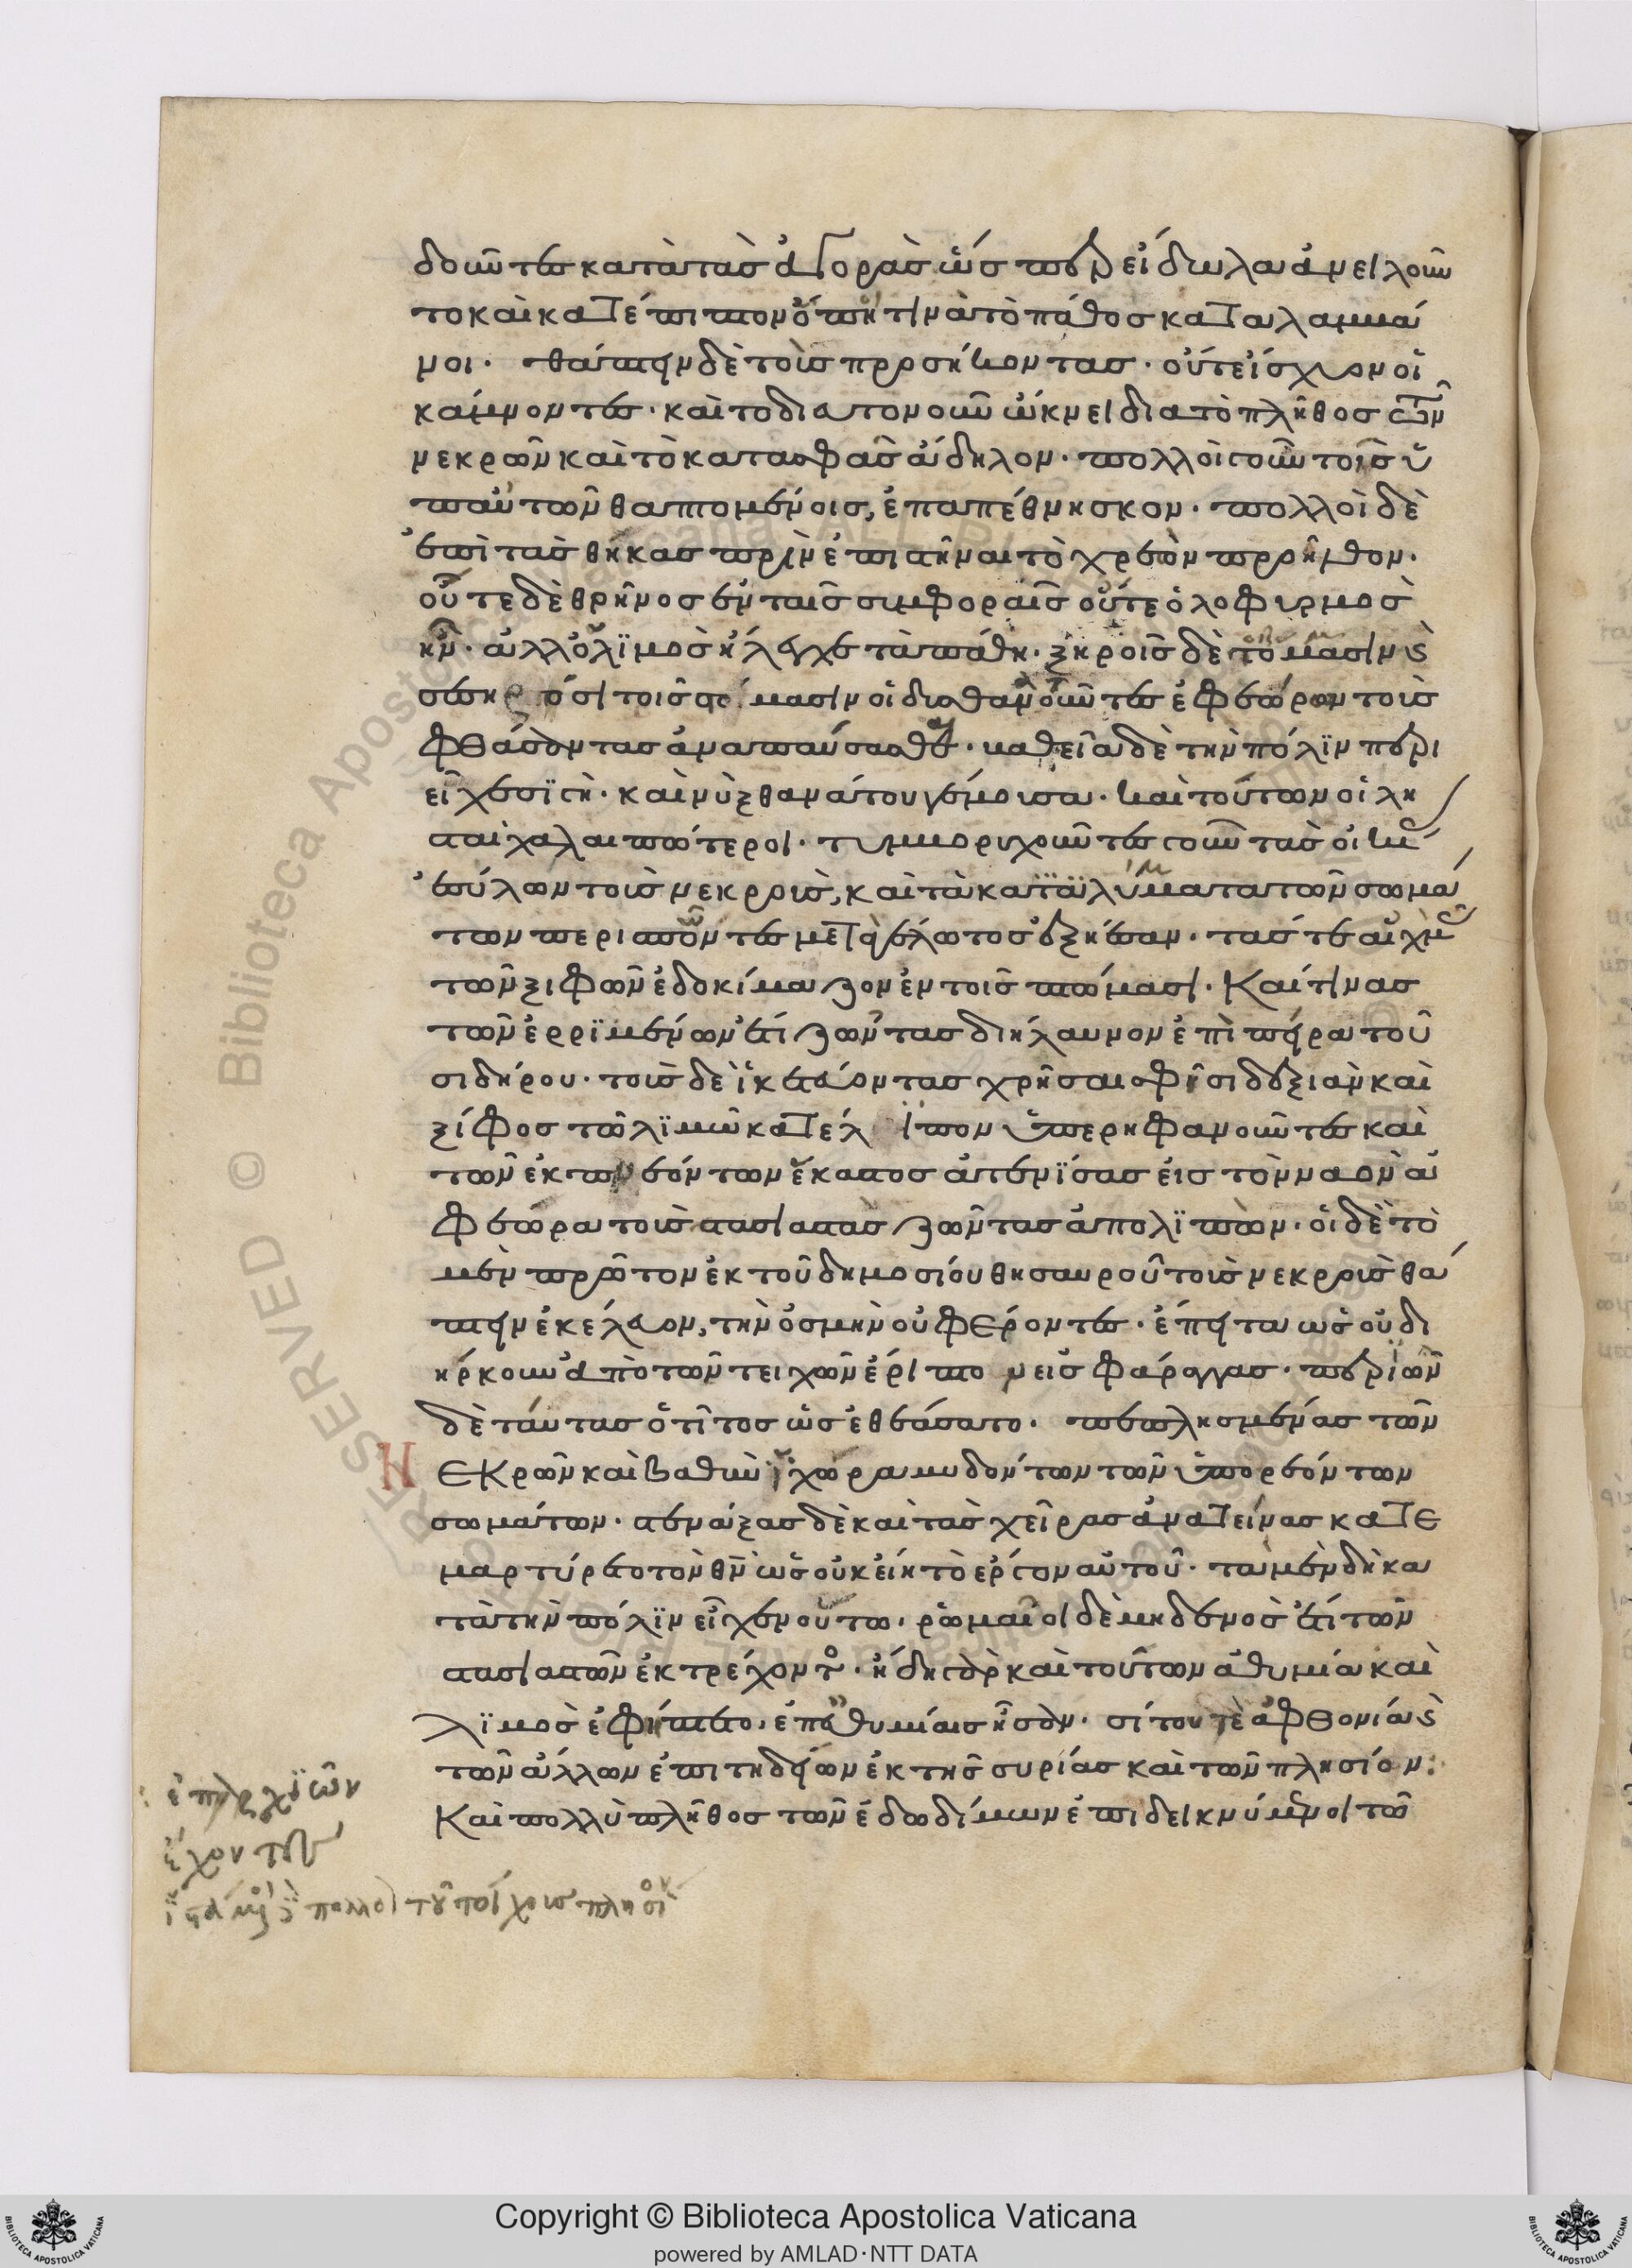 δοῦντες κατὰ τὰς ἀγορὰς ὥσπερ εἴδωλα ἀνειλοῦν
το καὶ κατέπιπτον ὅπη τινὰ τὸ πάθος καταλαμβά
νοι. θάπτειν δὲ τοὺς προσήκοντας. οὔτε ἴσχυον οἱ
κάμνοντες. καὶ τὸ διατονοῦν ὤκνει διὰ τὸ πλῆθος τῶν
νεκρῶν καὶ τὸ κατασφᾶς ἄδηλον. πολλοὶ γοῦν τοῖς ὑ
π' αὐτῶν θαπτομένοις, ἐπαπέθνησκον. πολλοὶ δὲ
ἐπὶ τὰς θήκας πρὶν ἐπιστῆναι τὸ χρεὼν προῆλθον.
οὔτε δὲ θρῆνος ἐν ταῖς συμφοραῖς οὔτε ὀλοφυρμὸς
ἦν. ἀλλ' ὁ λϊμὸς ἤλεγχε τὰ πάθη. ξηροῖς δὲ τοῖς ὄμμασιν καὶ
σεσηρόσι τοῖς στόμασιν οἱ δυσθανοῦντες ἐφεώρων τοὺς
φθάσοντας ἀναπαύσασθαι. βαθεῖα δὲ τὴν πόλϊν περι
εῖχε σϊγὴ. καὶ νὺξ θανάτου γέμουσα. καὶ τούτων οἱ λη
σταὶ χαλεπώτεροι. τυμβωρυχοῦντες γοῦν τὰς οἰκίας
ἐσύλων τοὺς νεκροὺς, καὶ τὰ καλύμματα τῶν σωμά
των περισπῶντες μετὰ γέλωτος ἐξῄεσαν. τάς τε αἰχμὰς
τῶν ξιφῶν ἐδοκίμαζον ἐν τοῖς πτώμασι. Καί τινας
τῶν ἐρρϊμένων ἔτι ζῶντας διήλαυνον ἐπὶ πείρα τοῦ
σιδήρου. τοὺς δὲ ἱκετεύοντας χρῆσαι σφῆσι δεξιὰν καὶ
ξίφος τῶ λϊμῶ κατέλιπον ὑπερηφανοῦντες καὶ
τῶν ἐκπνεόντων ἕκαστος ἀτενϊσας εἰς τὸν ναὸν ἀ
φεώρα τοὺς στασιαστὰς ζῶντας ἀπολϊπὼν. οἱ δὲ τὸ
μὲν πρῶτον ἐκ τοῦ δημοσίου θησαυροῦ τοὺς νεκροὺς θά
πτειν ἐκέλευον, τὴν ὀσμὴν οὐ φέροντες. ἔπειτα ὡς οὐ δι
ήρκουν ἀπὸ τῶν τειχῶν ἔριπτον εἰς φάραγγας. περιϊὼν
δὲ ταύτας ὁ τῖτος ὡς ἐθεάσατο. πεπλησμένας τῶν
Νεκρῶν καὶ βαθὺν ἰχῶρα μυδόντων τῶν ὑπορεόντων
σωμάτων. ἐστέναξας δὲ καὶ τὰς χεῖρας ἀνατείνας κατε
μαρτύρετο τὸν θν ὡς οὐκ εἴη τὸ ἔργον αὐτοῦ. τὰ μὲν δὴ κα
τὰ τὴν πόλϊν εῖχεν οὕτω. ῥωμαῖοι δὲ μηδενὸς ἔτι τῶν
στασιαστῶν ἐκτρέχοντος. ἤδη γὰρ καὶ τούτων ἀθυμία καὶ
λϊμὸς ἐφήπτετο, ἐπ' εὐθυμίαις ἦσαν. σίτου τὲ ἀφθονίαν καὶ
τῶν ἄλλων ἐπιτηδείων ἐκ τῆς συρίας καὶ τῶν πλησίον:
Καὶ πολλὺ πλῆθος τῶν ἐδωδίμων ἐπιδεικνύμενοι τῶ
ἔχοντες